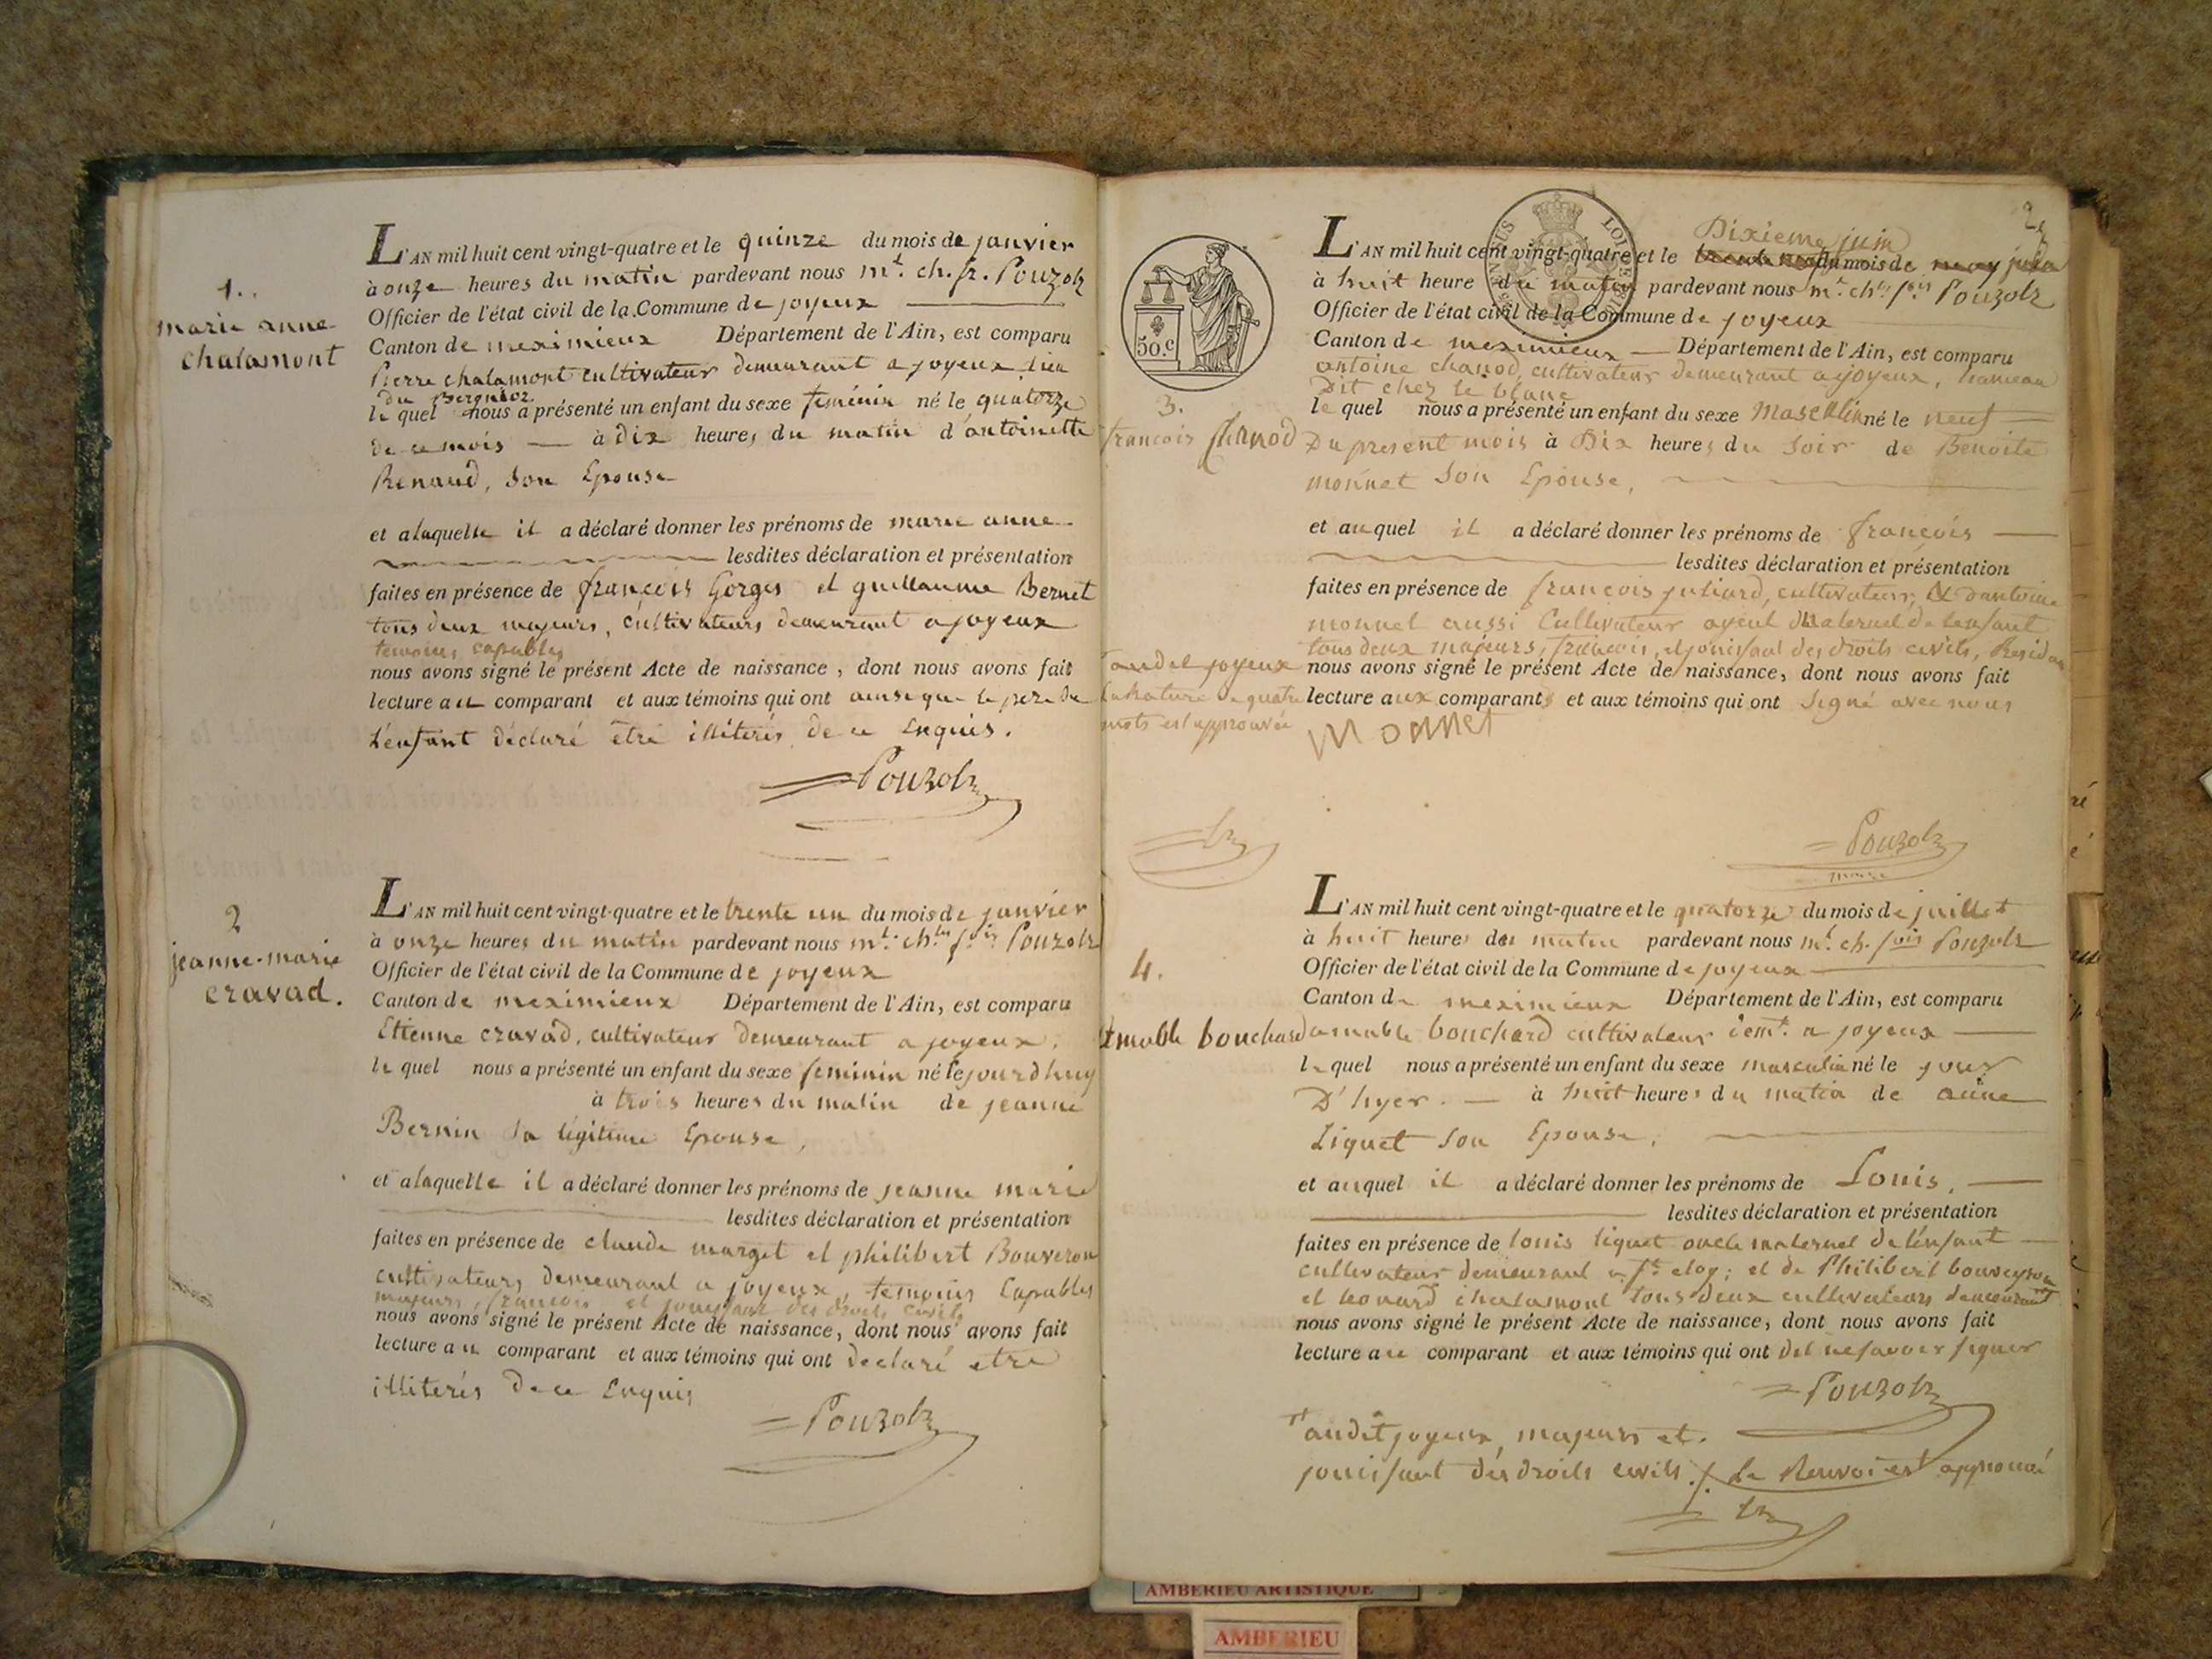 1..
marie anne
chalamont
L'AN mil huit cent vingt-quatre et le quinze du mois de janvier
à onze heures du matin pardevant nous mt. ch. fr. Pouzolz
Officier de l'état civil de la Commune de joyeux
Canton de meximieux Département de l'Ain, est comparu
Pierre chalamont cultivateur demeurant a joyeux lieu
du
le quel nous a présenté un enfant du sexe feminin né le quatorze
de ce mois à dix heures du matin d'antoinette
Renaud, son Epouse
et a laquelle il a déclaré donner les prénoms de marie anne
lesdites déclaration et présentation
faites en présence de françois Gorges et guillaume Bernet
tous deux majeurs, cultivateurs demeurant a joyeux
temoins capables
nous avons signé le présent Acte de naissance, dont nous avons fait
lecture au comparant et aux témoins qui ont ainsi que le pere de
L'enfant déclaré etre illiterés de ce Enquis.
Pouzolz
2
jeanne-marie
cravad.
L'AN mil huit cent vingt-quatre et le trente un du mois de janvier
à onze heures du matin pardevant nous mt. ch.les f.ois Pouzolz
Officier de l'état civil de la Commune de joyeux
Canton de meximieux Département de l'Ain, est comparu
Etienne cravad, cultivateur demeurant a joyeux.
le quel nous a présenté un enfant du sexe feminin né le jourdhuy
à trois heures du matin de jeanne
Bernin sa légitime Epouse,
et a laquelle il a déclaré donner les prénoms de jeanne marie
lesdites déclaration et présentation
faites en présence de claude marget et philibert Bouveron
cultivateurs demeurant a joyeux, temoins Capables
majeurs, francois et jouissant des droits civils
nous avons signé le présent Acte de naissance, dont nous avons fait
lecture au comparant et aux témoins qui ont declaré etre
illiterés de ce Enquis
Pouzolz
2
50.c
LOI
3.
francois chanod
L'AN mil huit cent vingt-quatre et le Dixieme juin du mois de may juin
à huit heure du matin pardevant nous mt. ch.les f.ois Pouzolz
Officier de l'état civil de la Commune de joyeux
Canton de meximieux Département de l'Ain, est comparu
antoine chanod, cultivateur demeurant a joyeux, hameau
Dit chez le blanc
le quel nous a présenté un enfant du sexe Masculin né le neuf
Du present mois à Dix heures du Soir de Benoite
monnet Son Epouse,
et au quel il a déclaré donner les prénoms de francois
lesdites déclaration et présentation
faites en présence de francois juliard, cultivateur, & dantoine
monnet aussi Cultivateur ayeul Maternel de Lenfant
tous deux majeurs, francois, et jouissant des droits civils,
nous avons signé le présent Acte de naissance, dont nous avons fait
lecture aux comparants et aux témoins qui ont Signé avec nous
audit joyeux
la Rature de quatre
mots est approuvée
Monnet
Pouzolz
maire
4.
Amable bouchard
L'AN mil huit cent vingt-quatre et le quatorze du mois de juillet
à huit heures du matin pardevant nous mt. ch. fois Pouzolz
Officier de l'état civil de la Commune de joyeux
Canton de meximieux Département de l'Ain, est comparu
amable bouchard cultivateur demt. a joyeux
le quel nous a présenté un enfant du sexe masculin né le jour
D'hyer. à huit heures du matin de anne
Liquet Son Epouse,
et auquel il a déclaré donner les prénoms de Louis.
lesdites déclaration et présentation
faites en présence de louis liquet oncle maternel de l'enfant
cultivateur demeurant a St. eloy; et de Philibert bouveyron
et leonard chalamont tous deux cultivateurs demeurant
nous avons signé le présent Acte de naissance, dont nous avons fait
lecture au comparant et aux témoins qui ont dit ne savoir signer
Pouzolz
audit joyeux, majeurs et.
jouissant des droits civils. le Renvoi est approuvé
AMBERIEU ARTISTIQUE
AMBERIEU